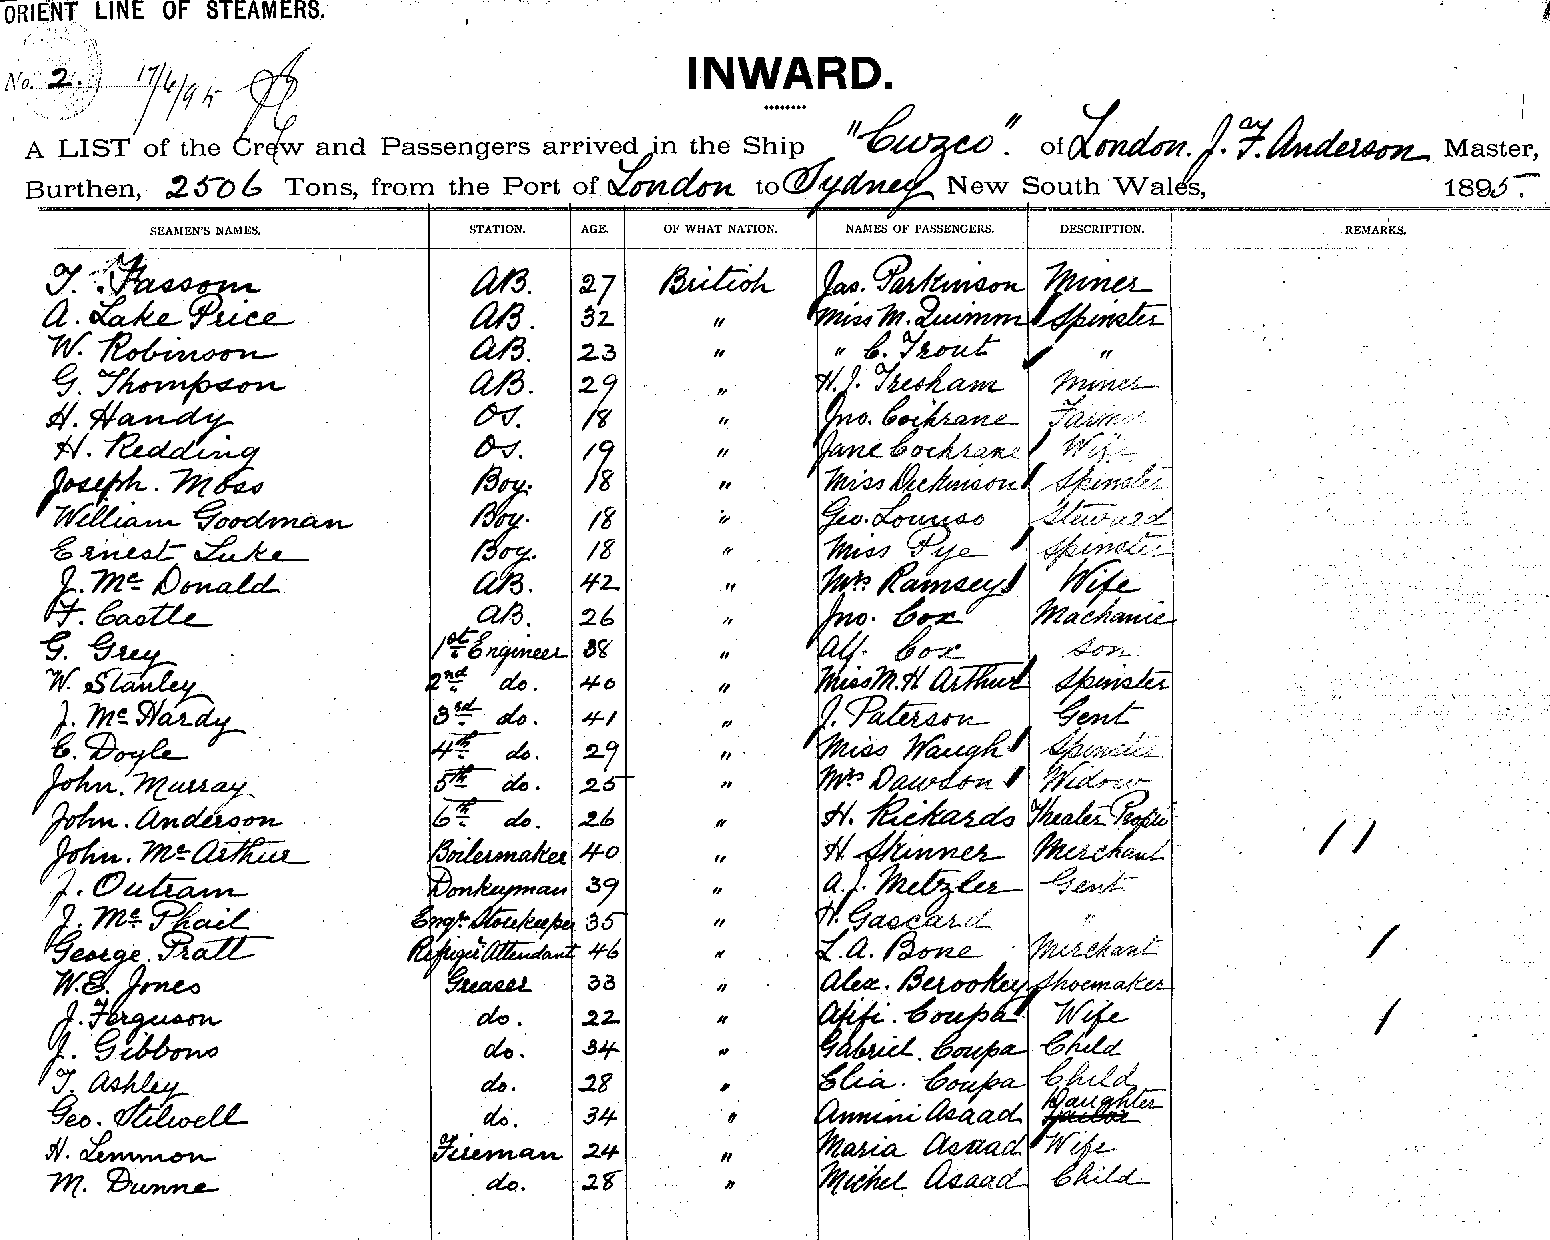 ORIENT LINE OF STEAMERS.
No. 2. 17/6/95
INWARD.
A LIST of the Crew and Passengers arrived in the Ship "Cuzco". of London. J. F. Anderson Master,
Burthen, 2506 Tons, from the Port of London to Sydney New South Wales, 1895.
SEAMEN'S NAMES. STATION. AGE. OF WHAT NATION. NAMES OF PASSENGERS. DESCRIPTION. REMARKS.
T. Fassom AB. 27 British Jas. Parkinson Miner
A. Lake Price AB. 32 " Miss M. Quimm Spinster
W. Robinson AB. 23 " " C. Trout "
G. Thompson AB. 29 " H. J. Tresham Miner
H. Handy OS. 18 " Jno. Cochrane Farmer
H. Redding OS. 19 " Jane Cochrane Wife
Joseph. Moss Boy. 18 " Miss Dickinson Spinster
William Goodman Boy. 18 " Geo. Steward
Ernest Luke Boy. 18 " Miss Pye Spinster
J. Mc Donald AB. 42 " Mrs Ramsey Wife
F. Castle AB. 26 " Jno. Cox Machanic
G. Grey 1st Engineer 38 " Alf. Cox son
W. Stanley 2nd do. 40 " Miss M. H Arthur Spinster
J. Mc Hardy 3rd do. 41 " J. Paterson Gent
C. Doyle 4th do. 29 " Miss Waugh Spinster
John. Murray 5th do. 25 " Mrs Dawson Widow
John. Anderson 6th do. 26 " H. Rickards Theater Propr
John. Mc Arthur Boilermaker 40 " H Skinner Merchant
J. Outram Donkeyman 39 " A. J. Metzler Gent
J. Mc Phail Engr. Storekeeper 35 " H. Gascard "
George. Pratt Refrigr Attendant 46 " L. A. Bone Merchant
W. E. Jones Greaser 33 " Alex. Berookey Shoemaker
J. Ferguson do. 22 " Afifi. Coupa Wife
J. Gibbons do. 34 " Gabriel. Coupa Child
T. Ashley do. 28 " Elia. Coupa Child
Geo. Stilwell do. 34 " Annini Asaad Daughter
H. Lemmon Fireman 24 " Maria Asaad Wife
M. Dunne do. 28 " Michel Asaad Child